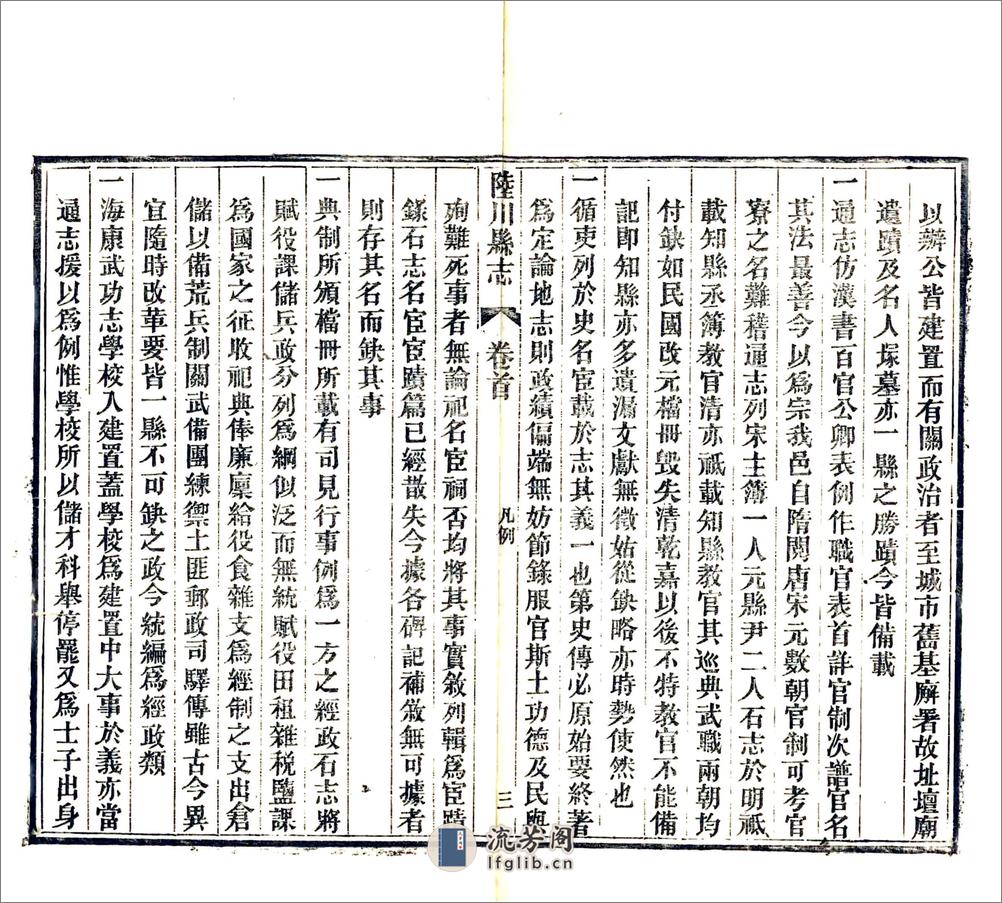 以辦公皆建置而有關政治者至城市舊基廨署故址壇廟
遺蹟及名人塚墓亦一縣之勝蹟今皆備載
一通志仿漢書百官公卿表例作職官表首詳官制次譜官名
其法最善今以爲宗我邑自隋閱唐宋元數朝官制可考官
寮之名難稽通志列宋主簿一人元縣尹二人石志於明祗
載知縣丞簿教官清亦祗載知縣教官其巡典武職兩朝均
付缺如民國改元檔冊毁失清乾嘉以後不特教官不能備
記即知縣亦多遺漏文獻無徵姑從缺略亦時勢使然也
一循吏列於史名宦載於志其義一也第史傳必原始要終著
爲定論地志則政績偏端無妨節錄服官斯土功德及民與
陸川縣志 卷首 凡例 三
殉難死事者無論祀名宦祠否均將其事實敘列輯爲宦蹟
錄石志名宦宦蹟篇已經散失今據各碑記補敘無可據者
則存其名而缺其事
一典制所頒檔冊所載有司見行事例爲一方之經政石志將
賦役課儲兵政分列爲綱似泛而無統賦役田租雜稅鹽課
爲國家之征收祀典俸廉廩給役食雜支爲經制之支出倉
儲以備荒兵制關武備團練禦土匪郵政司驛傳雖古今異
宜隨時改革要皆一縣不可缺之政今統編爲經政類
一海康武功志學校入建置蓋學校爲建置中大事於義亦當
通志援以爲例惟學校所以儲才科舉停罷又爲士子出身
流芳阁
lfglib.cn